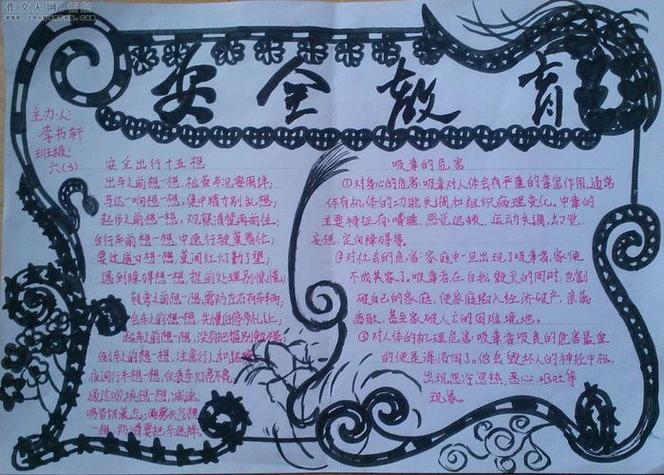 作文人网
安全教育
主力人:
李书轩
班级:
六(3)
安全出行十五想
出车之前想一想,检查车况要周详;
马达一响想一想,集中精力别乱想;
起步之前想一想,观察清楚再前往;
自行车前想一想,中速行驶莫着忙;
要过道口想一想,莫闯红灯勤了望;
遇到障碍想一想,提前处理别惊慌;
转弯之前想一想,需防左右有车辆;
会车之前想一想,先慢后停多礼让;
超车之前想一想,没有把握别勉强;
倒车之前想一想,注意行人和
夜间行车想一想,仪表车灯亮不亮;
通过城镇想一想,减速
鸣笛切莫忘;雨雾天气想
一想,防滑要把车速降。
吸毒的危害
①对身心的危害:吸毒对人体会有严重的毒害作用,通常
伴有机体的功能失调和组织病理变化。中毒的
主要特征有:嗜睡、感觉迟钝、运动失调、幻觉、
妄想、定向障碍等。
②对社会的危害:家庭中一旦出现了吸毒者,家便
不成其家了。吸毒者在自我毁灭的同时,也割
破自己的家庭,使家庭陷入经济破产、亲属
离散、甚至家破人亡的困难境地。
③对人体的机理危害:吸毒者吸食的危害最重
的便是海洛因了。他会毁坏人的神经中枢,
出现忽冷忽热、恶心、呕吐等
现象。